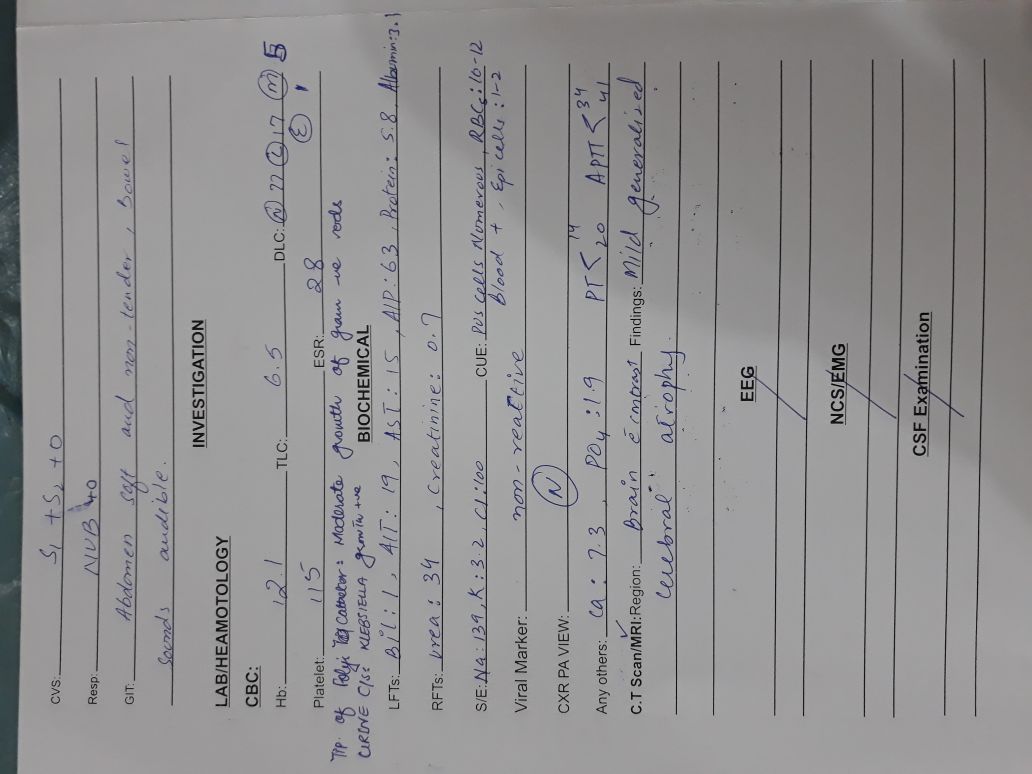 CVS: S1 + S2 + 0
Resp: NVB +0
GIT: Abdomen soft and non-tender, Bowel
sounds audible.
INVESTIGATION
LAB/HEAMOTOLOGY
CBC:
Hb: 12.1 TLC: 6.5 DLC: N 77 L 17 M 5
E 1
Platelet: 115 ESR: 28
Tip of Foley Catheter: Moderate growth of gram -ve rods
URINE C/S: KLEBSIELLA growth +ve
BIOCHEMICAL
LFTs: Bil: 1, ALT: 19, AST: 15, ALP: 63, Protein: 5.8, Albumin: 3.1
RFTs: Urea: 34, Creatinine: 0.7
S/E: Na: 139, K: 3.2, Cl: 100 CUE: Pus cells Numerous, RBCs: 10-12
Blood +, Epi cells: 1-2
Viral Marker: non-reactive
CXR PA VIEW: N
Any others: Ca: 7.3, PO4: 1.9 PT < 14 20 APTT < 34 41
C.T Scan/MRI: Region: Brain c contrast Findings: Mild generalized
cerebral atrophy.
EEG
NCS/EMG
CSF Examination